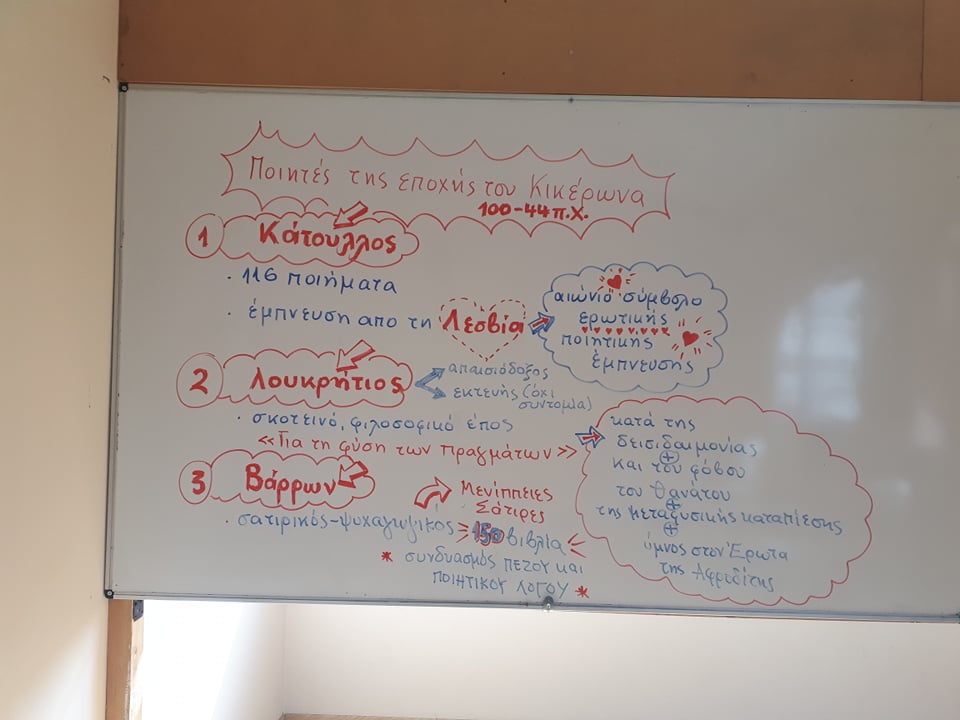 Ποιητές της εποχής του Κικέρωνα
100-44 π.Χ.
1 Κάτουλλος
· 116 ποιήματα
· έμπνευση απο τη Λεσβία
αιώνιο σύμβολο
ερωτικής
ποιητικής
έμπνευσης
2 Λουκρήτιος
απαισιόδοξος
εκτενής (όχι
συντομία)
· σκοτεινό, φιλοσοφικό έπος
«Για τη φύση των πραγμάτων»
κατά της
δεισιδαιμονίας
+
και του φόβου
του θανάτου
+
της μεταφυσικής καταπίεσης
+
ύμνος στον Έρωτα
της Αφροδίτης
3 Βάρρων
Μενίππειες
Σάτιρες
· σατιρικός-ψυχαγωγικός 150 βιβλία
* συνδυασμός ΠΕΖΟΥ και
ΠΟΙΗΤΙΚΟΥ ΛΟΓΟΥ *